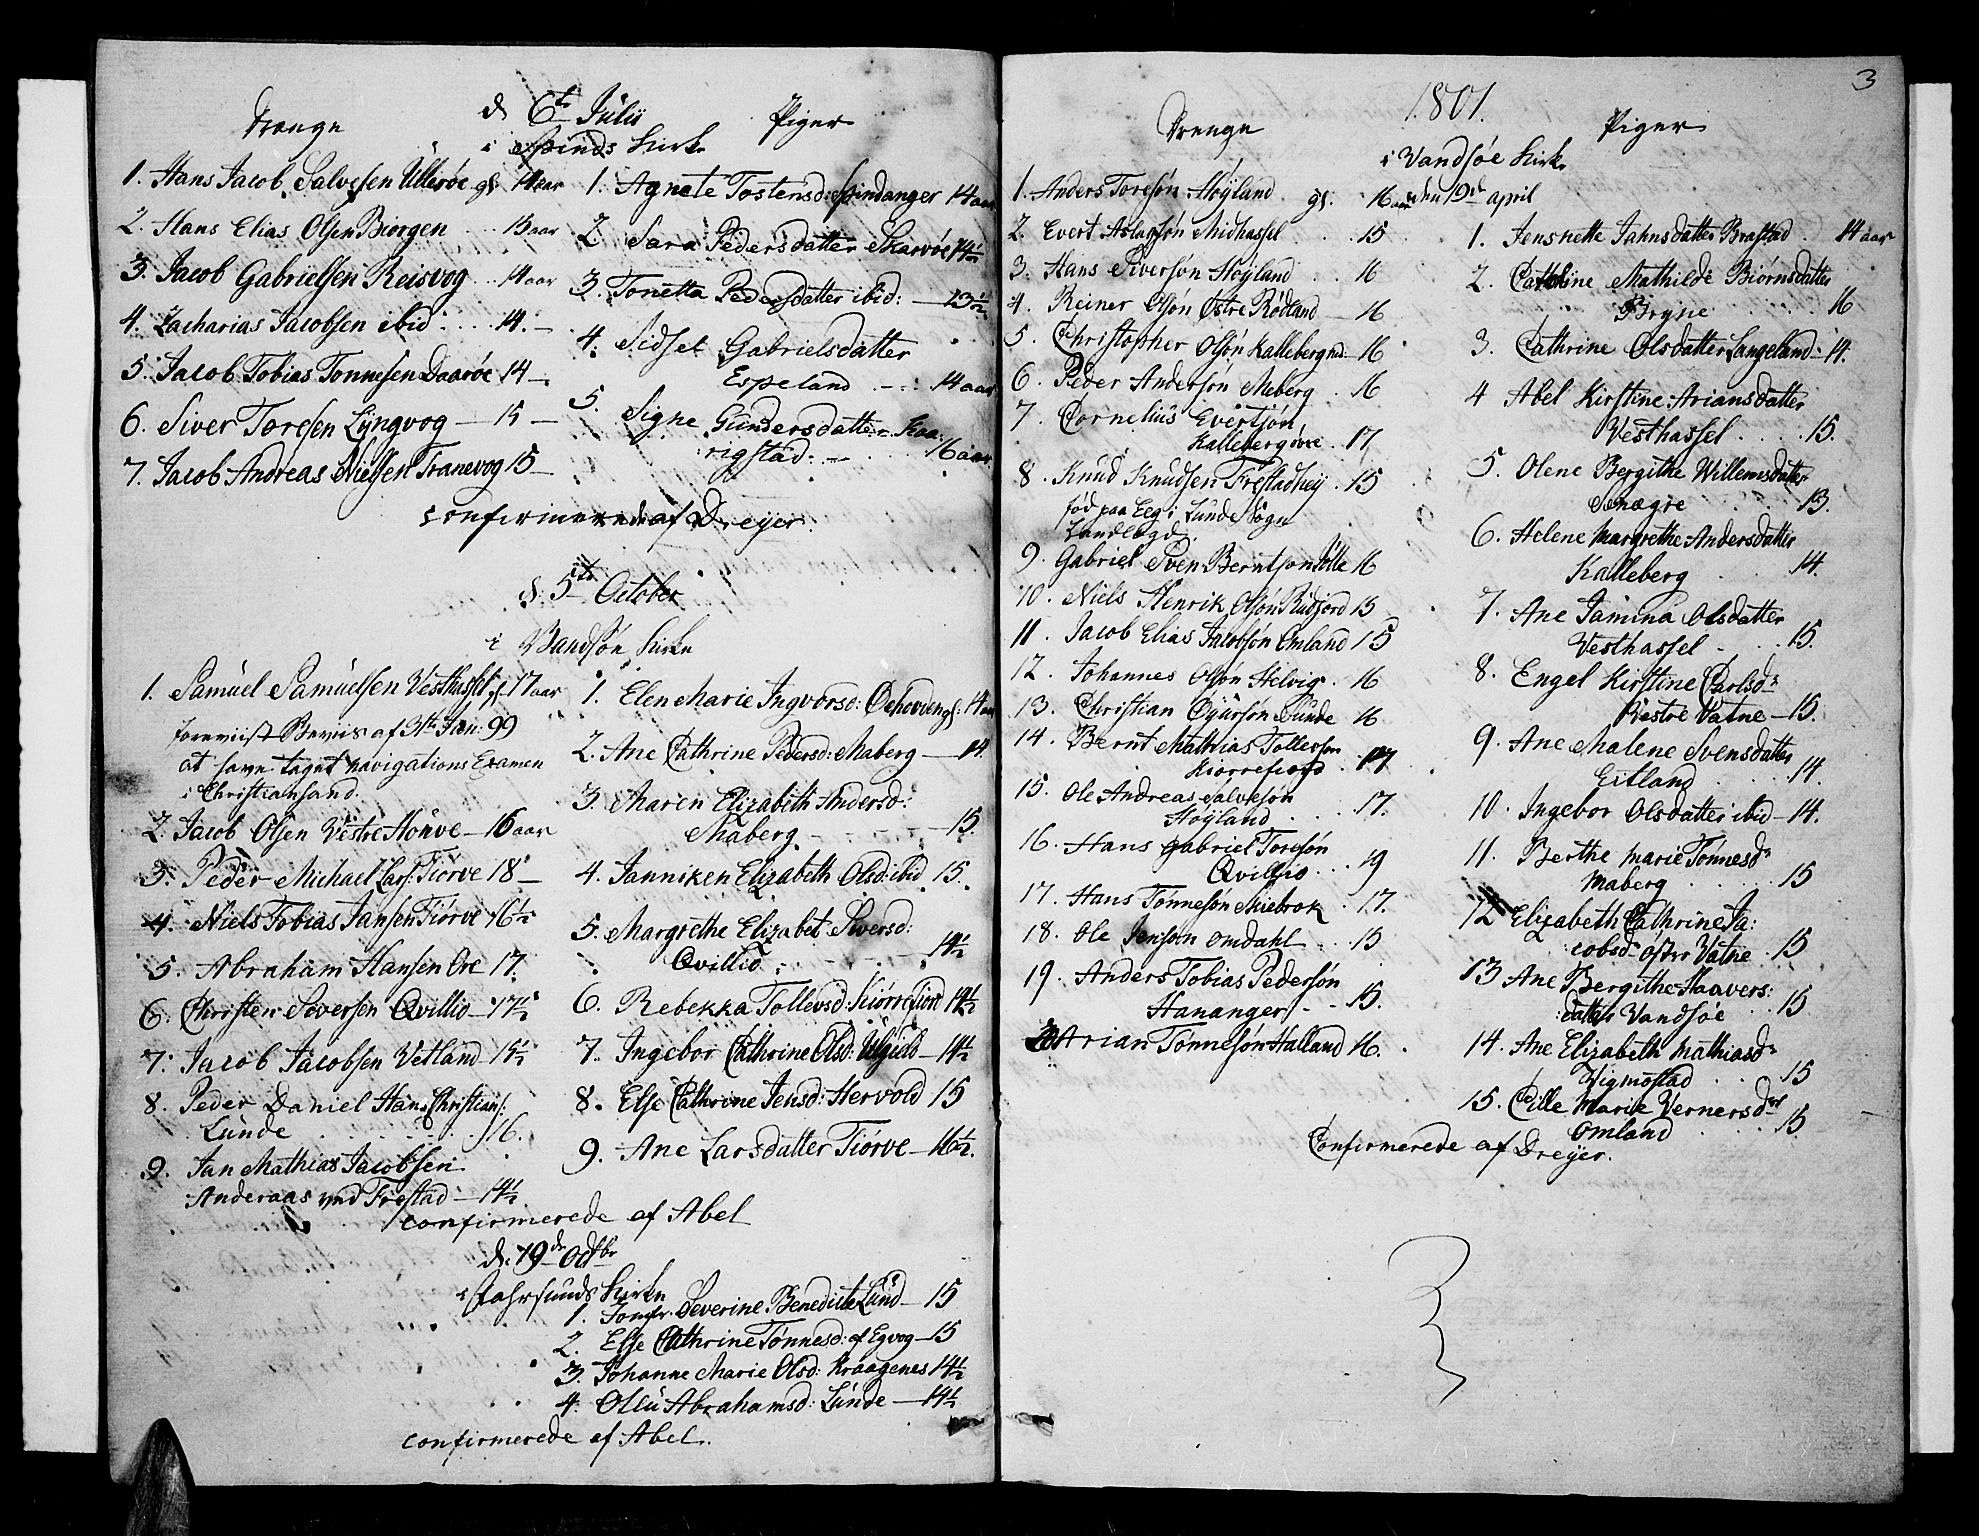 d. 6te Julii
Drenge
Piger
i Spinds Kirke
1. Hans Jacob Salvesen Ullerøe gl. 14 aar
2. Hans Elias Olsen Biørgen ... 15 aar
3. Jacob Gabrielsen Reisvog ... 14 aar
4. Zacharias Jacobsen ibid .... 14. –
5. Jacob Tobias Tønnesen Daarøe 14 –
6. Siver Toresen Lyngvog — 15 —
7. Jacob Andreas Nielsen Tranevog 15 –
1. Agnete Tostensd: Spindanger 14 aar
2. Sara Pedersdatter Skarvøe 14½
3. Tonetta Pedersdatter ibid: — 13½
4. Sidsel Gabrielsdatter
Espeland - - : 14 aar
5. Signe Gundersdatter Kaa:
rigstad: — 16 aar
confirmerede af Dreyer.
d: 5te October
i Vandsøe Kirke
1. Samuel Samuelsen Vesthassel gl. 17 aar
foreviist Beviis af Jan: 99
at have taget navigations Examen
i Christiansand.
2. Jacob Olsen Vestre Houve — 16 aar
3. Peder Michael Lars: Tiørve 18 —
4. Niels Tobias Jansen Tiørve 16½
5. Abraham Hansen Ore 17.
6. Christen Siversen Qvillio — 17½
7. Jacob Jacobsen Vetland — 15½
8. Peder Daniel Hans Christians:
Lunde . . . . . 16.
9. Jan Mathias Jacobsen
Anderaas ved Frestad — 14½
1. Elen Marie Ingvorsd: gl. 14 aar
2. Ane Cathrine Pedersd: Maberg — 14.
3. Maren Elizabeth Andersd:
Maberg - - - - 15.
4. Janniken Elizabeth Olsd: ibid 15.
5. Margrethe Elizabet Siversd:
Qvillio - - - - 14½
6. Rebekka Tollevsd: Kiørrefiord 14½
7. Ingebor Cathrine Olsd: Ulgield — 14½
8. Else Cathrine Jensd: Hervold 15
9. Ane Larsdatter Tiørve — 16½.
confirmerede af Abel
d. 19de Octbr
i Fahrsunds Kirke
1. Jomfr. Severine Benedicte Lund — 15
2. Else Cathrine Tønnesd: af Egvog — 15
3. Johanne Marie Olsd: Kraagenes 14½
4. Ollu Abrahamsd: Lunde — 14½
confirmerede af Abel.
3
1801.
Drenge
Piger
i Vandsøe Kirke
den 19de april
1. Anders Toresøn Høyland gl. 16 aar
2. Evert Aslagsøn Midhassel . . 15
3. Hans Siversøn Høyland . . 16
4. Reiner Olsøn Østre Rødland — 16
5. Christopher Olsøn Kalleberg nd. 16
6. Peder Andersøn Meberg . 16
7. Cornelius Evertsøn
Kalleberg øvre . 17
8. Knud Knudsen Frestadhey . 15
fød paa Eeg i Lunde Sogn
9. Gabriel Sven Berntsøn 16
10. Niels Henrik Olsøn Rudjord 15
11. Jacob Elias Jacobsøn Omland 15
12. Johannes Olsøn Helvig . 16
13. Christian Sunde 16
14. Bernt Mathias Tollevsøn
Kiørrefiord . 17
15. Ole Andreas Salvesøn
Høyland . . . . 17.
16. Hans Gabriel Toresøn
Qvillio . . . 19
17. Hans Tønnesøn Miebrok . 17.
18. Ole Jensøn Omdahl . . 15
19. Anders Tobias Pedersøn
Hananger - - 15.
20 Arian Tønnesøn Halland 16.
1. Jensnette Jahnsdatter Brastad . 14 aar
2. Cathrine Mathilde Biørnsdatter
Bryne . . . . . 16
3. Cathrine Olsdatter Langeland 14.
4 Abel Kirstine Ariansdatter
Vesthassel . . . . 15.
5. Olene Bergithe Willemsdatter
Snægre . . . . 13.
6. Helene Margrethe Andersdatter
Kalleberg . . . 14.
7. Ane Jamina Olsdatter
Vesthassel . . . 15.
8. Engel Kirstine Carlsdr
Vestre Vatne — 15.
9. Ane Malene Svensdatter
Eitland . . . . 14.
10. Ingebor Olsdatter ibid — 14.
11. Berthe Marie Tønnesdr
Maberg . . . . 15
12 Elizabeth Cathrine Ja:
cobsdr Østre Vatne . 15
13 Ane Bergithe Haavers:
datter Vandsøe . . 15
14. Ane Elizabeth Mathiasdr
Vigmostad . . . 15
15. Cille Marie Vernersdtr
Omland . . . . 15
Confirmerede af Dreyer.